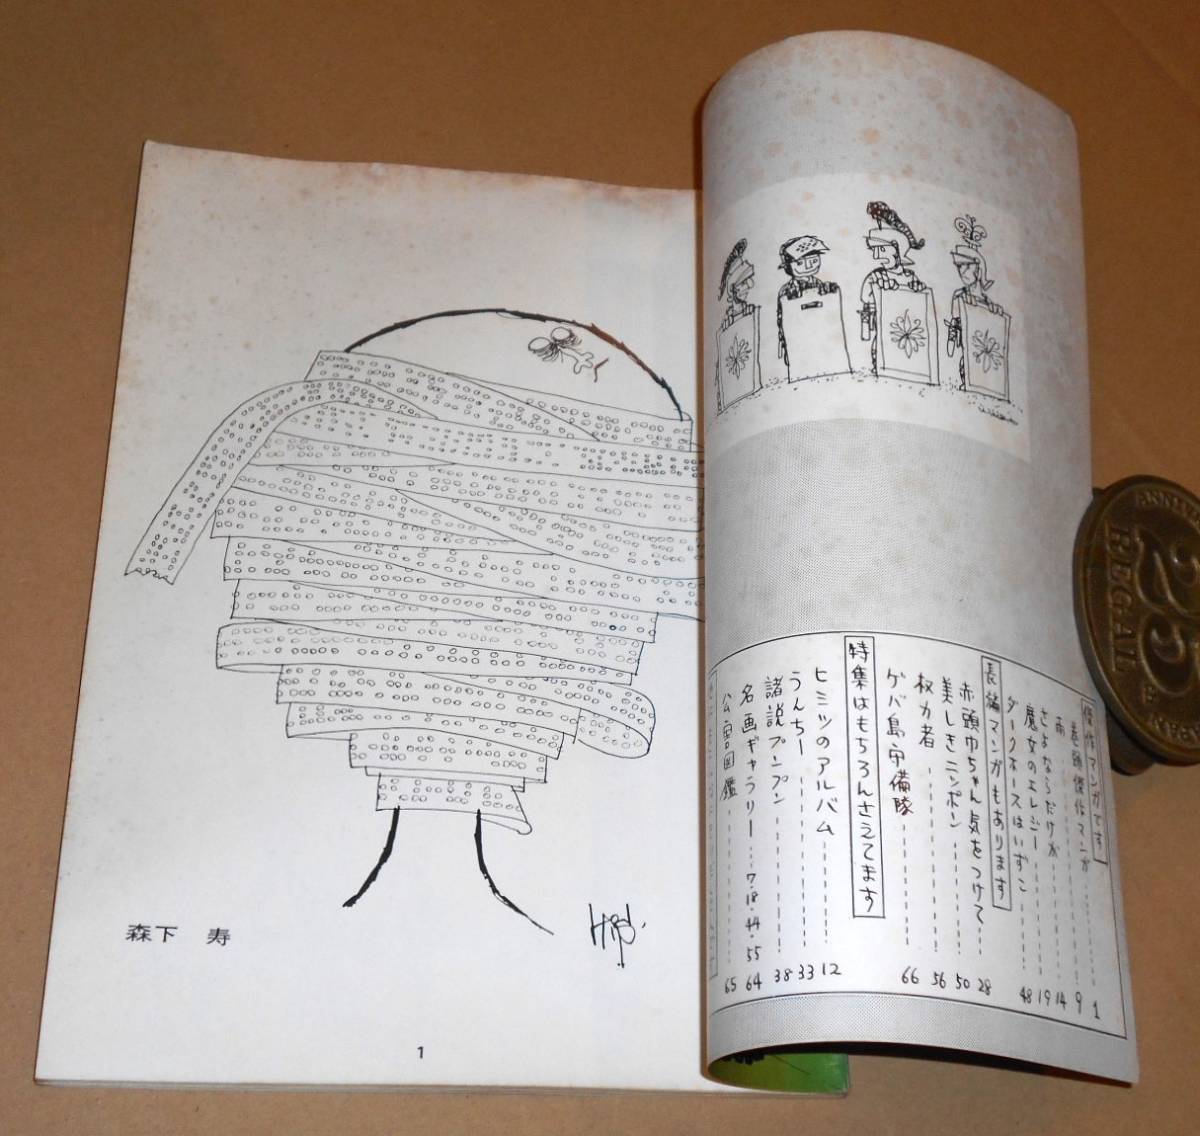 森下 寿
1
傑作マンガです
巻頭傑作マンガ 1
雨 9
さよならだけが 14
魔女のエレジー 19
ダークホースはいずこ 48
長編マンガもあります
赤頭巾ちゃん気をつけて 28
美しきニッポン 50
权力者 56
ゲバ島守備隊 66
特集はもちろんさえてます
ヒミツのアルバム 12
うんちー 33
諸説プンプン 38
名画ギャラリー 7・18・44・55 64
公害図鑑 65
REGAL
25